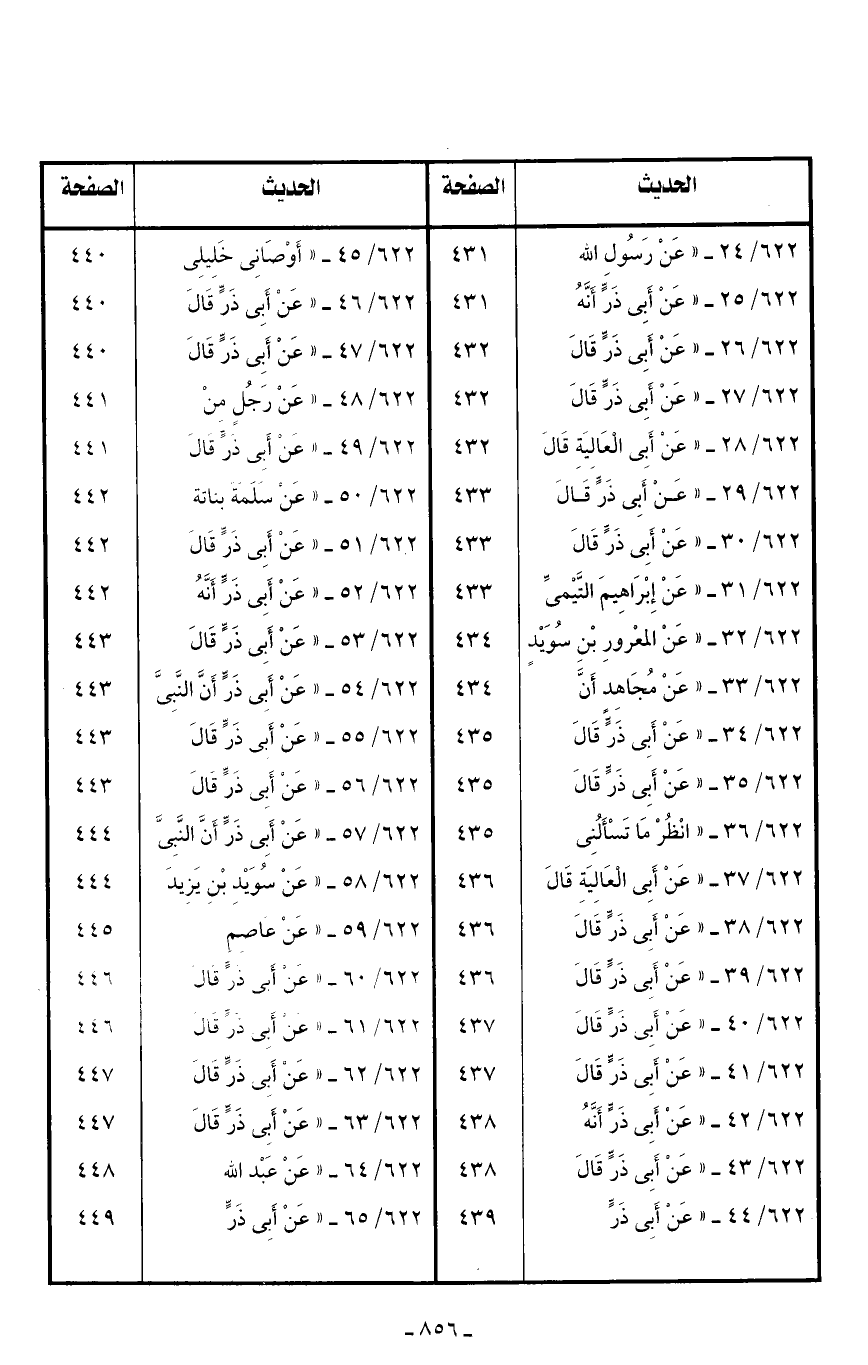 الحديث الصفحة الحديث الصفحة
٦٢٢/ ٢٤ ـ « عَنْ رَسُولِ الله ٤٣١ ٦٢٢/ ٤٥ ـ « أَوْصَانِى خَلِيلِى ٤٤٠
٦٢٢/ ٢٥ ـ « عَنْ أَبِى ذَرٍّ أَنَّهُ ٤٣١ ٦٢٢/ ٤٦ ـ « عَنْ أَبِى ذَرٍّ قَالَ ٤٤٠
٦٢٢/ ٢٦ ـ « عَنْ أَبِى ذَرٍّ قَالَ ٤٣٢ ٦٢٢/ ٤٧ ـ « عَنْ أَبِى ذَرٍّ قَالَ ٤٤٠
٦٢٢/ ٢٧ ـ « عَنْ أَبِى ذَرٍّ قَالَ ٤٣٢ ٦٢٢/ ٤٨ ـ « عَنْ رَجُلٍ مِنْ ٤٤١
٦٢٢/ ٢٨ ـ « عَنْ أَبِى الْعَالِيَةِ قَالَ ٤٣٢ ٦٢٢/ ٤٩ ـ « عَنْ أَبِى ذَرٍّ قَالَ ٤٤١
٦٢٢/ ٢٩ ـ « عَـنْ أَبِى ذَرٍّ قَـالَ ٤٣٣ ٦٢٢/ ٥٠ ـ « عَنْ سَلَمَةَ بناتة ٤٤٢
٦٢٢/ ٣٠ ـ « عَنْ أَبِى ذَرٍّ قَالَ ٤٣٣ ٦٢٢/ ٥١ ـ « عَنْ أَبِى ذَرٍّ قَالَ ٤٤٢
٦٢٢/ ٣١ ـ « عَنْ إِبْرَاهِيمَ التَّيْمِىِّ ٤٣٣ ٦٢٢/ ٥٢ ـ « عَنْ أَبِى ذَرٍّ أَنَّهُ ٤٤٢
٦٢٢/ ٣٢ ـ « عَنْ المَعْرورِ بْنِ سُوَيْدٍ ٤٣٤ ٦٢٢/ ٥٣ ـ « عَنْ أَبِى ذَرٍّ قَالَ ٤٤٣
٦٢٢/ ٣٣ ـ « عَنْ مُجَاهِدٍ أَنَّ ٤٣٤ ٦٢٢/ ٥٤ ـ « عَنْ أَبِى ذَرٍّ أَنَّ النَّبِىَّ ٤٤٣
٦٢٢/ ٣٤ ـ « عَنْ أَبِى ذَرٍّ قَالَ ٤٣٥ ٦٢٢/ ٥٥ ـ « عَنْ أَبِى ذَرٍّ قَالَ ٤٤٣
٦٢٢/ ٣٥ ـ « عَنْ أَبِى ذَرٍّ قَالَ ٤٣٥ ٦٢٢/ ٥٦ ـ « عَنْ أَبِى ذَرٍّ قَالَ ٤٤٣
٦٢٢/ ٣٦ ـ « انْظُرْ مَا تَسْأَلُنِى ٤٣٥ ٦٢٢/ ٥٧ ـ « عَنْ أَبِى ذَرٍّ أَنَّ النَّبِىَّ ٤٤٤
٦٢٢/ ٣٧ ـ « عَنْ أَبِى الْعَالِيَةِ قَالَ ٤٣٦ ٦٢٢/ ٥٨ ـ « عَنْ سُوَيْدِ بْنِ يَزِيدَ ٤٤٤
٦٢٢/ ٣٨ ـ « عَنْ أَبِى ذَرٍّ قَالَ ٤٣٦ ٦٢٢/ ٥٩ ـ « عَنْ عَاصِمٍ ٤٤٥
٦٢٢/ ٣٩ ـ « عَنْ أَبِى ذَرٍّ قَالَ ٤٣٦ ٦٢٢/ ٦٠ ـ « عَنْ أَبِى ذَرٍّ قَالَ ٤٤٦
٦٢٢/ ٤٠ ـ « عَنْ أَبِى ذَرٍّ قَالَ ٤٣٧ ٦٢٢/ ٦١ ـ « عَنْ أَبِى ذَرٍّ قَالَ ٤٤٦
٦٢٢/ ٤١ ـ « عَنْ أَبِى ذَرٍّ قَالَ ٤٣٧ ٦٢٢/ ٦٢ ـ « عَنْ أَبِى ذَرٍّ قَالَ ٤٤٧
٦٢٢/ ٤٢ ـ « عَنْ أَبِى ذَرٍّ أَنَّهُ ٤٣٨ ٦٢٢/ ٦٣ ـ « عَنْ أَبِى ذَرٍّ قَالَ ٤٤٧
٦٢٢/ ٤٣ ـ « عَنْ أَبِى ذَرٍّ قَالَ ٤٣٨ ٦٢٢/ ٦٤ ـ « عَنْ عَبْدِ الله ٤٤٨
٦٢٢/ ٤٤ ـ « عَنْ أَبِى ذَرٍّ ٤٣٩ ٦٢٢/ ٦٥ ـ « عَنْ أَبِى ذَرٍّ ٤٤٩
ـ ٨٥٦ ـ